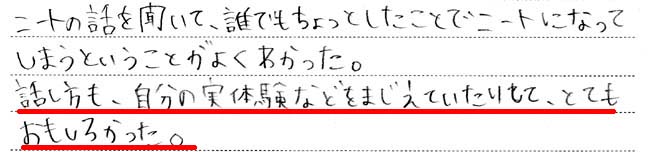 ニートの話を聞いて、誰でもちょっとしたことでニートになって
しまうということがよくわかった。
話し方も、自分の実体験などをまじえていたりもして、とても
おもしろかった。